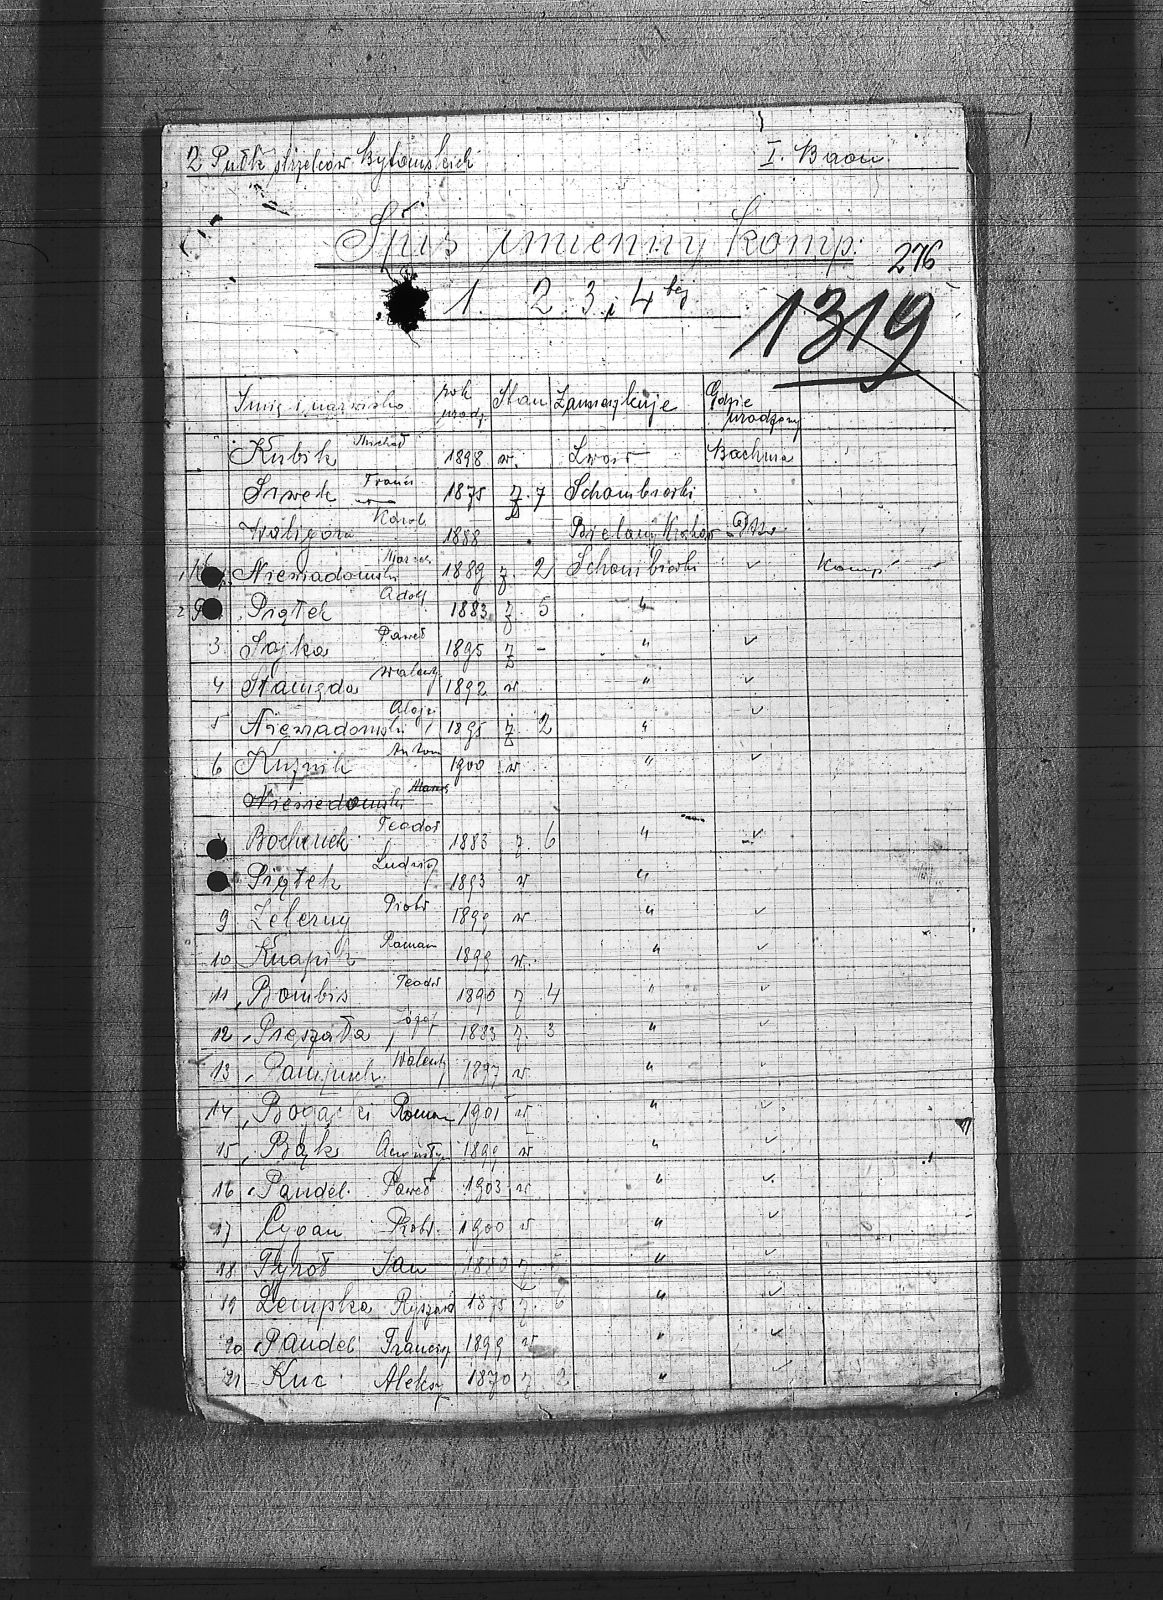 2 Pułk strzelców Bytomskich I. Baon
Spis imienny Komp.
276
1. 2. 3. 4 tej
1319
Imię i nazwisko rok urodz. Stan Zamieszkuje Gdzie urodzony
Kubik Michał 1898 w. Lwów Bachnia
Franc 1875 ż. 7 Schombierki
Waligóra Karol 1888 Bielany
Niemadomski 1889 ż. 2 Schombierki ✓ Komp.
2 Piątek Adolf 1883 ż. 5 "
3 Sajka Paweł 1895 ż - " ✓
4 Walenty 1892 w " ✓
5 Niemadomski Alojz 1895 ż. 2 " ✓
6 Kuźnik Anton 1900 w " ✓
Niemedomski
Bochenek Teodor 1883 ż. 6 " ✓
Piątek Ludwig 1893 w "
9 Zelezny Piotr 1899 w " ✓
10 Knapik Roman 1899 w. " ✓
11 Bombis Teodor 1890 ż 4 " ✓
12 Józef 1883 ż. 3 " ✓
13 Walenty 1897 w "
14 Bogacki Roman 1901 w " ✓
15 Bąk Augustyn 1899 w " ✓
16 Pandel Paweł 1903 w " ✓
17 Cygan Robt. 1900 w " ✓
18 Jan ż "
19 Lempka Ryszard 1875 ż. 6 " ✓
20 Pandel Francisz 1899 w " ✓
21 Kuc Aleksy 1870 ż 2 " ✓